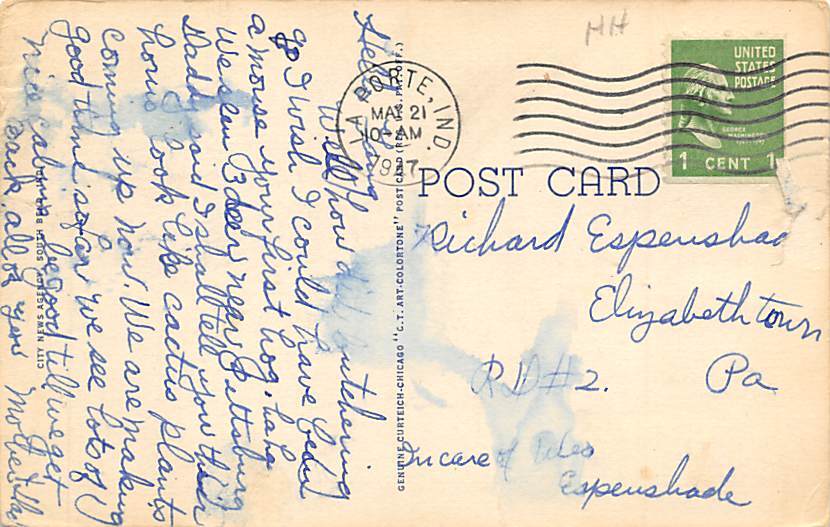 Hello
Well how did butchering
go I wish I could have been
a mouse your first hog. haha
We seen 3 deer near Pittsburg
Daddy said I shall tell you their
horns look like cactus plants
coming up now. We are making
good time so far we see lots of
nice cabins be good till we get
back, all of you Mother &
CITY NEWS AGENCY, SOUTH BEND, IND.
GENUINE CURTEICH-CHICAGO "C. T. ART-COLORTONE" POST CARD (REG. U. S. PAT. OFF.)
HH
LA PORTE, IND.
MAY 21
10-AM
1947
UNITED
STATES
POSTAGE
GEORGE
WASHINGTON
1 CENT 1
POST CARD
Richard Espenshad
Elizabethtown
RD#2. Pa
In care of
Espenshade